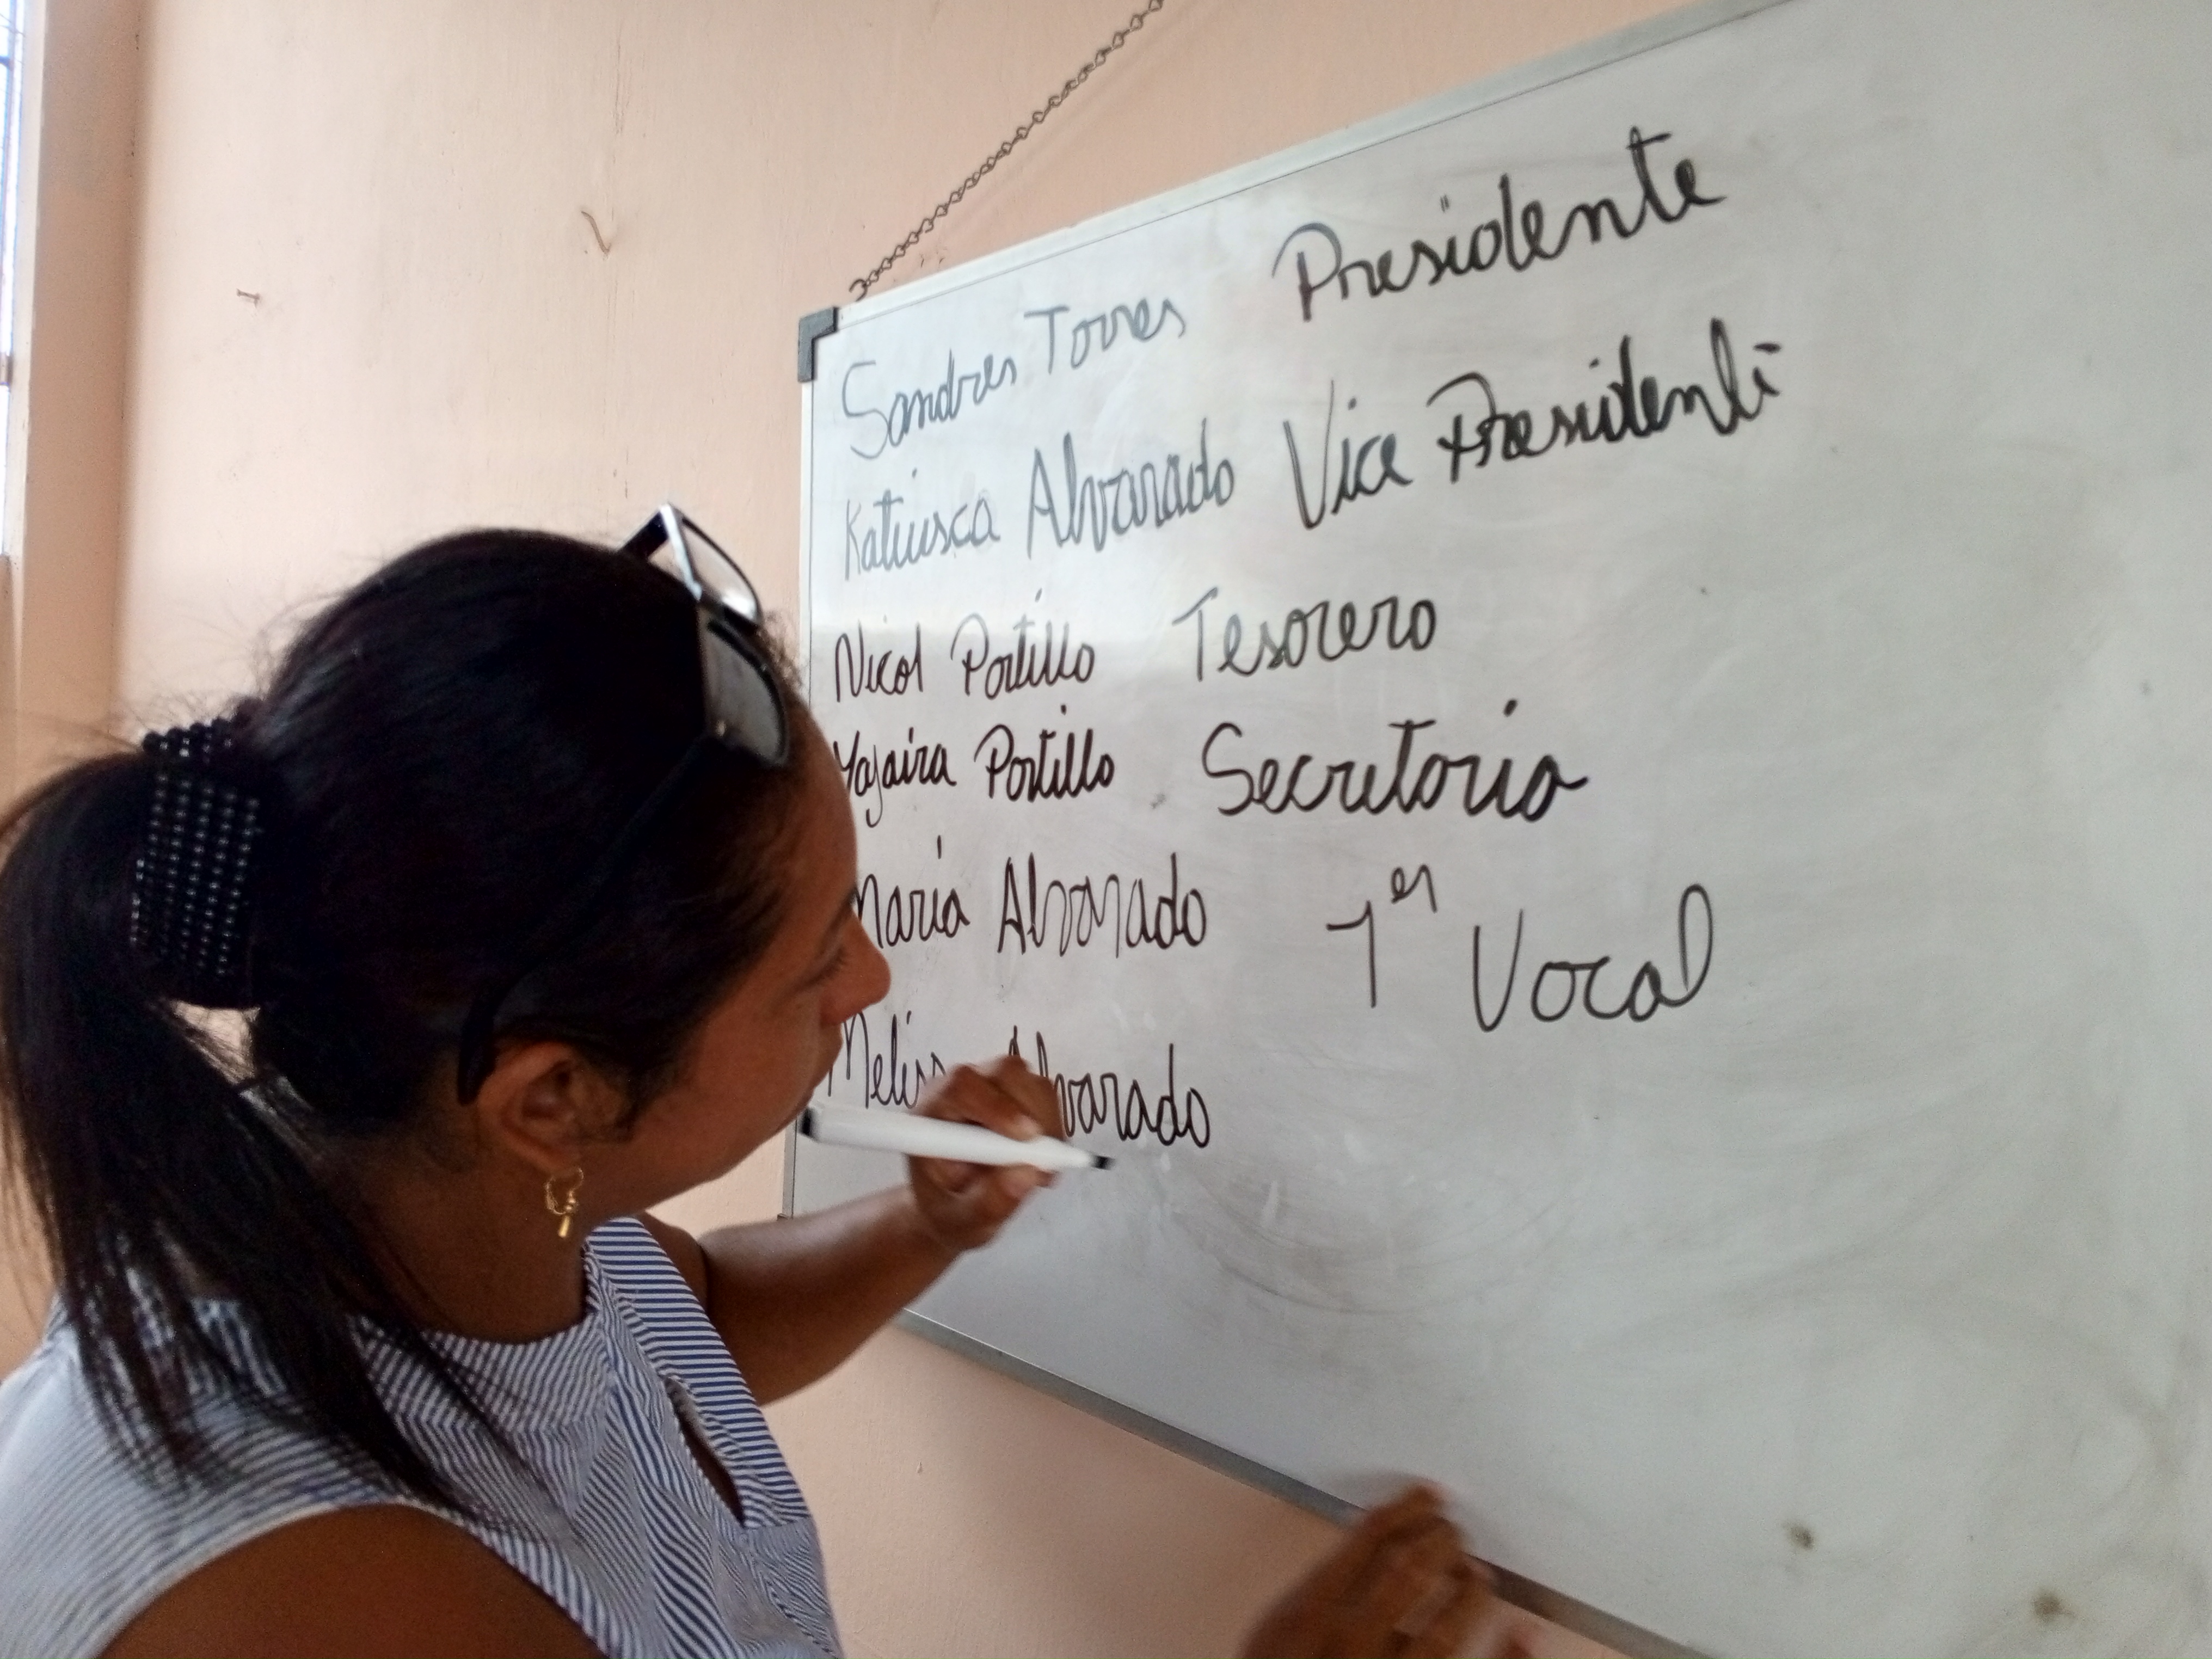 Sandres Torres Presidente
Katiusca Alvarado Vice Presidente
Nicol Portillo Tesorero
Yajaira Portillo Secretoria
Maria Alvarado 1er Vocal
Alvarado